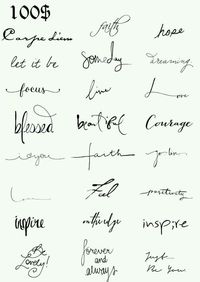 100$
Carpe diem
faith
hope
let it be
Someday
dreaming
focus
live
Love
blessed
beautiful
Courage
faith
Feel
positivity
inspire
on the edge
insp;re
Be Lovely!
forever
and
always
Just
Be You